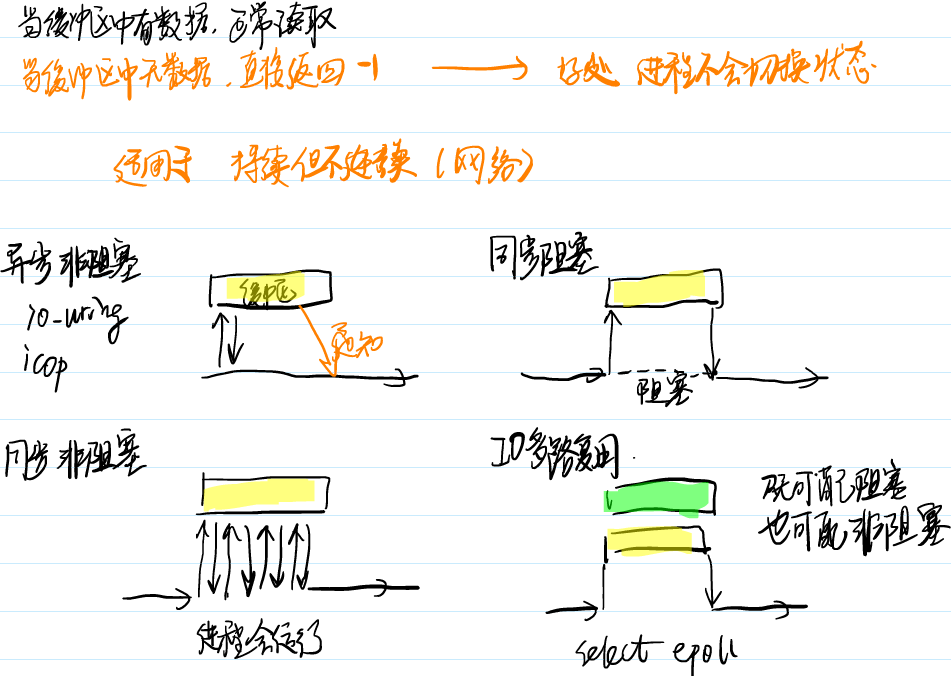 当缓冲区中有数据，正常读取
当缓冲区中无数据，直接返回 -1 好处 进程不会切换状态
适用于 持续但不连续（网络）
异步非阻塞
io-uring
icop
缓冲区
通知
同步阻塞
阻塞
同步非阻塞
进程会运行
IO多路复用.
既可配阻塞
也可配非阻塞
select epoll